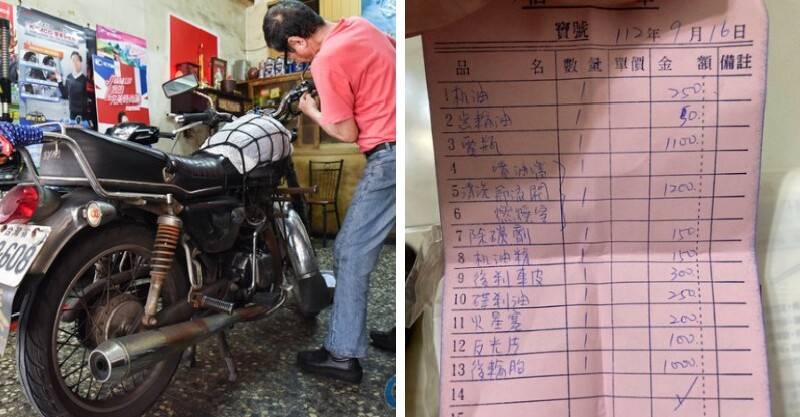 KYMCO
SYM
台灣省
8606
寶號 112年9月16日
品名 數量 單價 金額 備註
1 机油 1 250
2 齿輪油 1 50.
3 電瓶 1 1100
4 噴油嘴
5 清洗 節流閥 1 1200
6 燃燒室
7 除碳劑 1 150
8 机油精 1 150
9 後剎車皮 1 300
10 碟剎油 1 250
11 火星塞 1 200
12 反光片 1 100.
13 後輪胎 1 1000
14
15